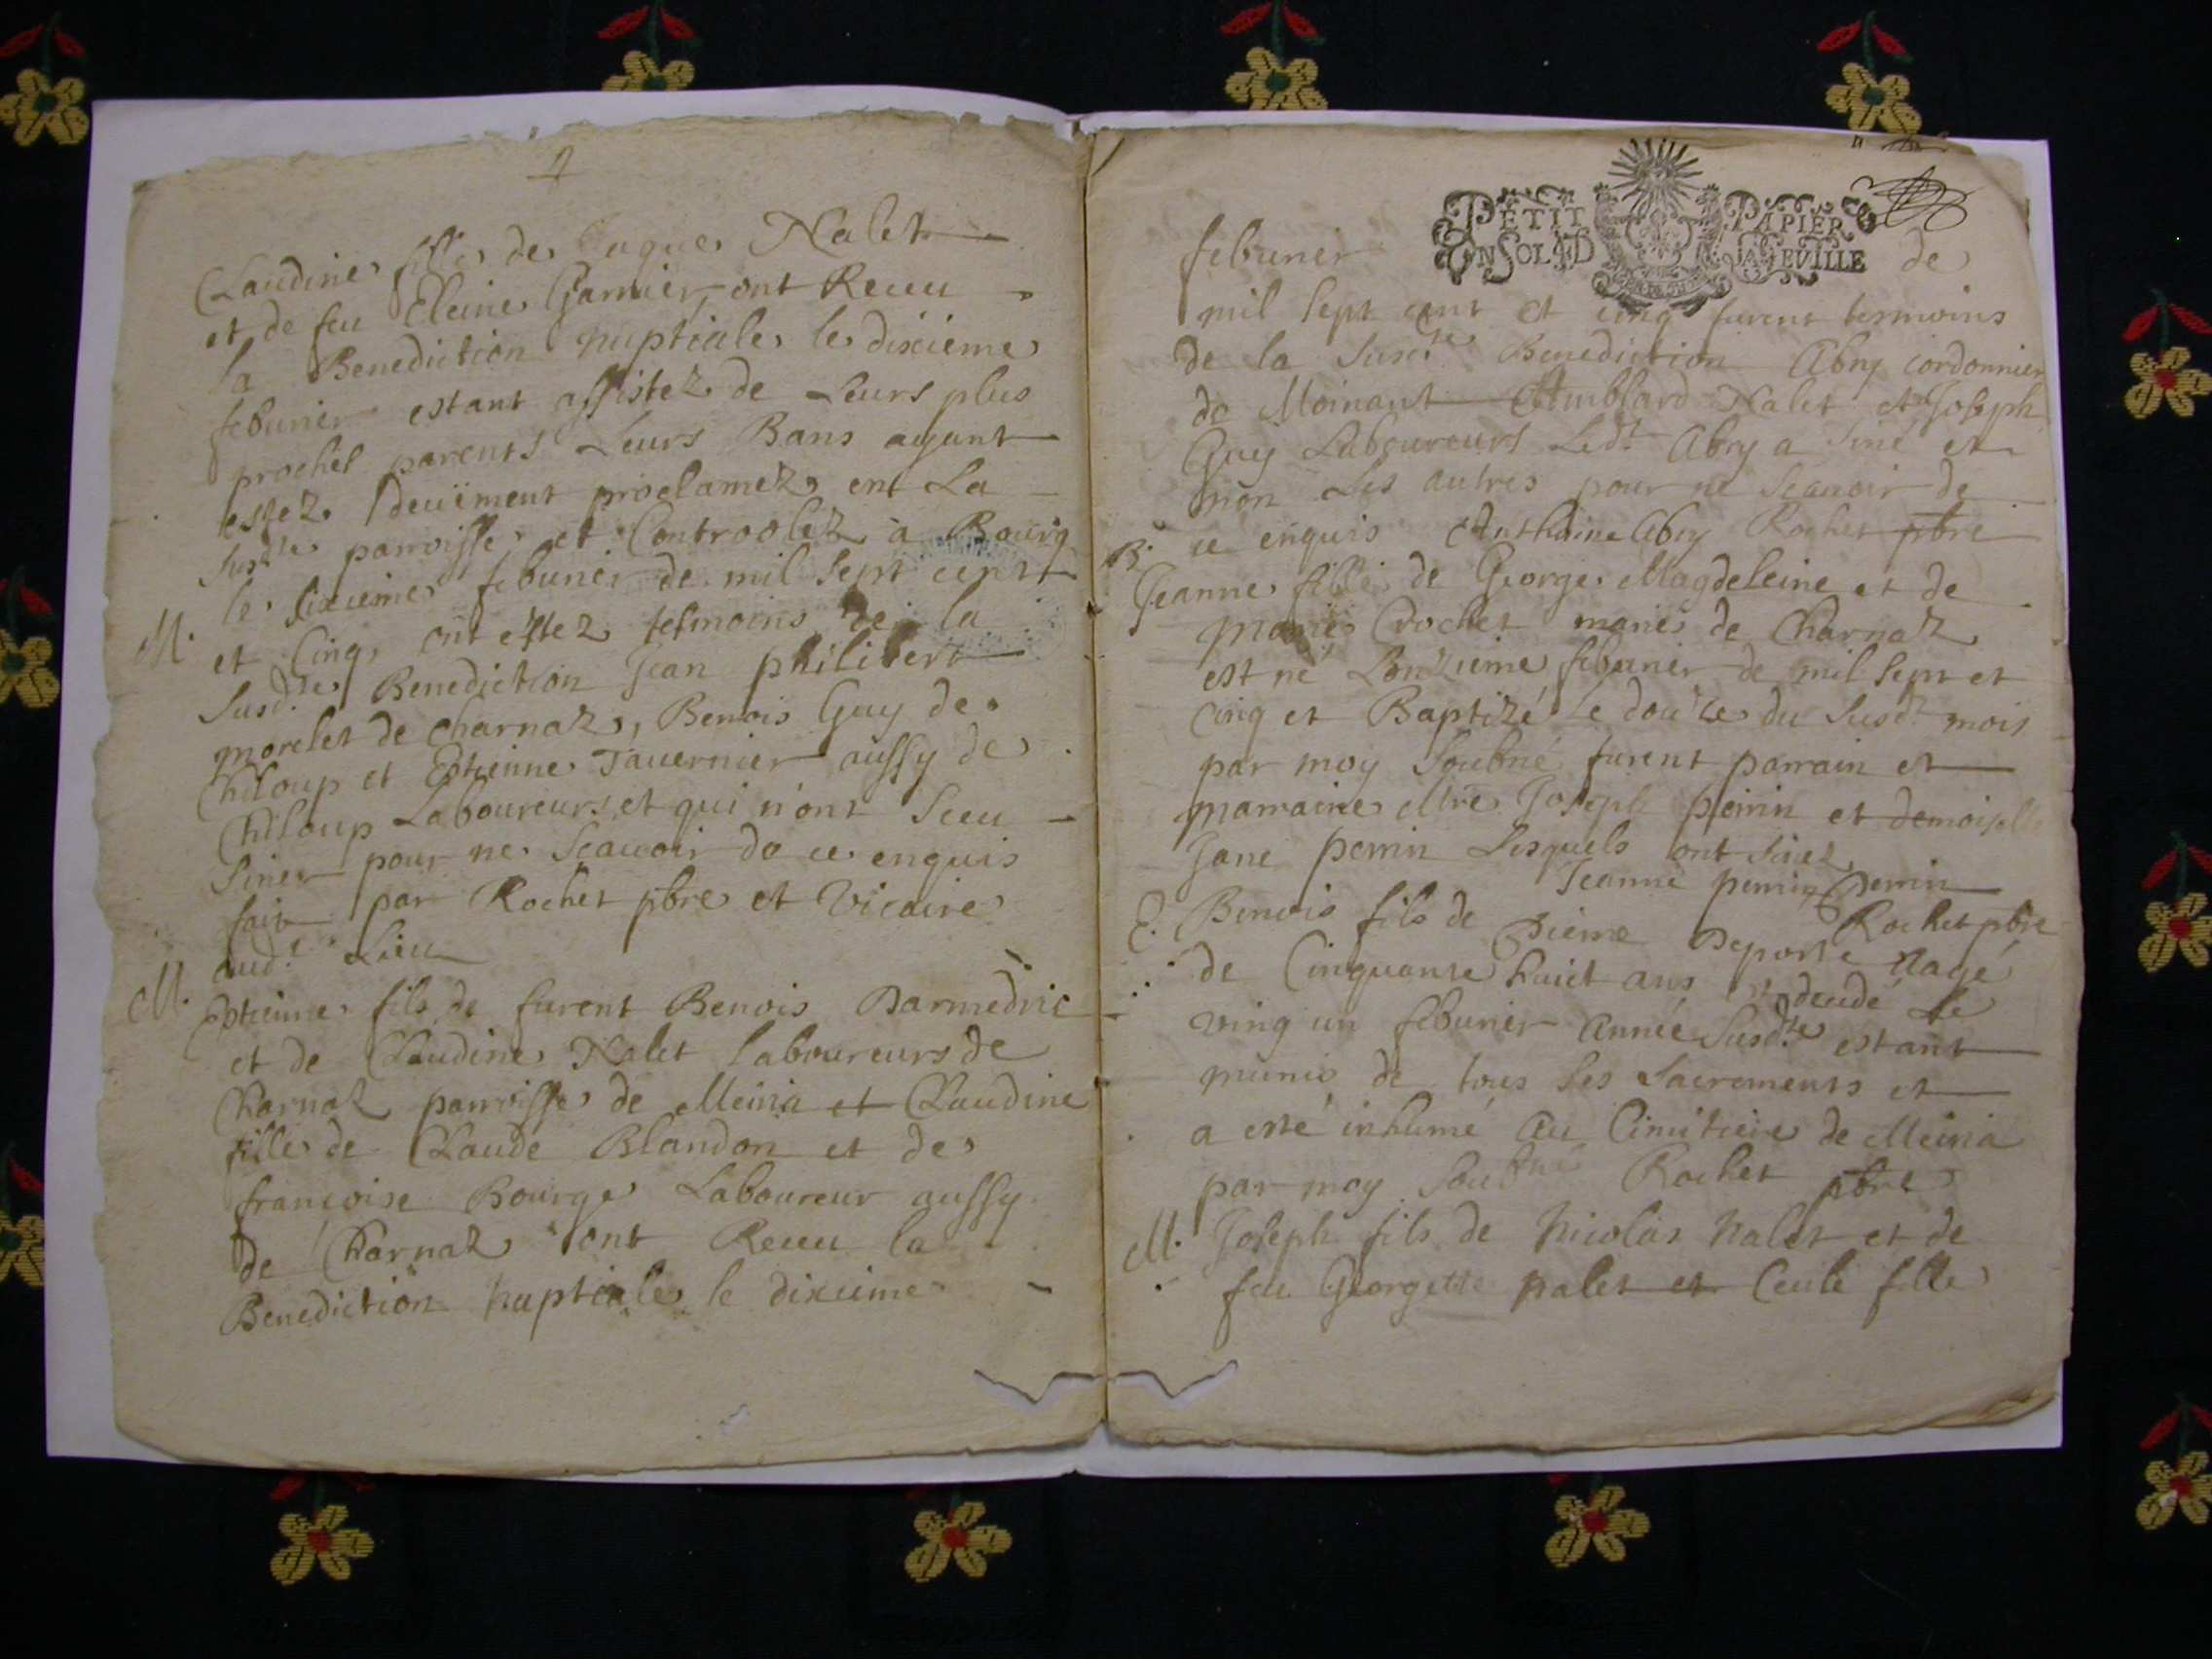 2
Claudine fille de Jaque Nalet
et de feu Cleine Garnier ont Receu
la Benediction nuptiale le dixieme
feburier estant assistez de Leurs plus
proches parents Leurs Bans ayant
estez deuëment proclamez en La
susd.te parroisse et Controolez à Bourg
le sixieme feburier de mil sept cent
M.
et Cinq, ont estez tesmoins de la
susd.te Benediction Jean philibert
morelet de Charnaz, Benois Guy de
Chiloup et Estienne Tauernier aussy de
Chiloup Laboureurs et qui n'ont sceu
siner pour ne scauoir de ce enquis
fait par Rochet pbre et vicaire
aud.t Lieu
M.
Estienne fils de furent Benois Darmedric
et de Claudine Nalet laboureurs de
Charnaz parroisse de Meiria et Claudine
fille de Claude Blandon et de
francoise Bourge Laboureur aussy
de Charnaz ont Receu la
Benediction nuptiale le dixieme
PETIT PAPIER
feburier de
mil sept cent et cinq furent tesmoins
de la susd.te Benediction Abry cordonnier
de Moinant Amblard Nalet et Joseph
Guy Laboureurs Led.t Abry a siné et
non Les autres pour ne scauoir de
ce enquis Anthoine Abry Rochet pbre
B.
Jeanne fille de George Magdeleine et de
marie Crochet mariés de Charnaz
est né Lonzieme feburier de mil sept et
cinq et Baptizé Le douze du susd.t mois
par moy soubné furent parrain et
marraine Mre Joseph perrin et demoiselle
Jane perrin Lesquels ont sinez
Jeanne perrin Perrin
Rochet pbre
E.
Benois fils de Pierre Deporte aagé
de Cinquante huict ans decedé Le
ving un feburier année susd.te estant
munis de tous ses sacrements et
a esté inhumé au Cimitiere de Meiria
par moy soubné Rochet pbre
M.
Joseph fils de nicolas nalet et de
feu Georgette palet et fille